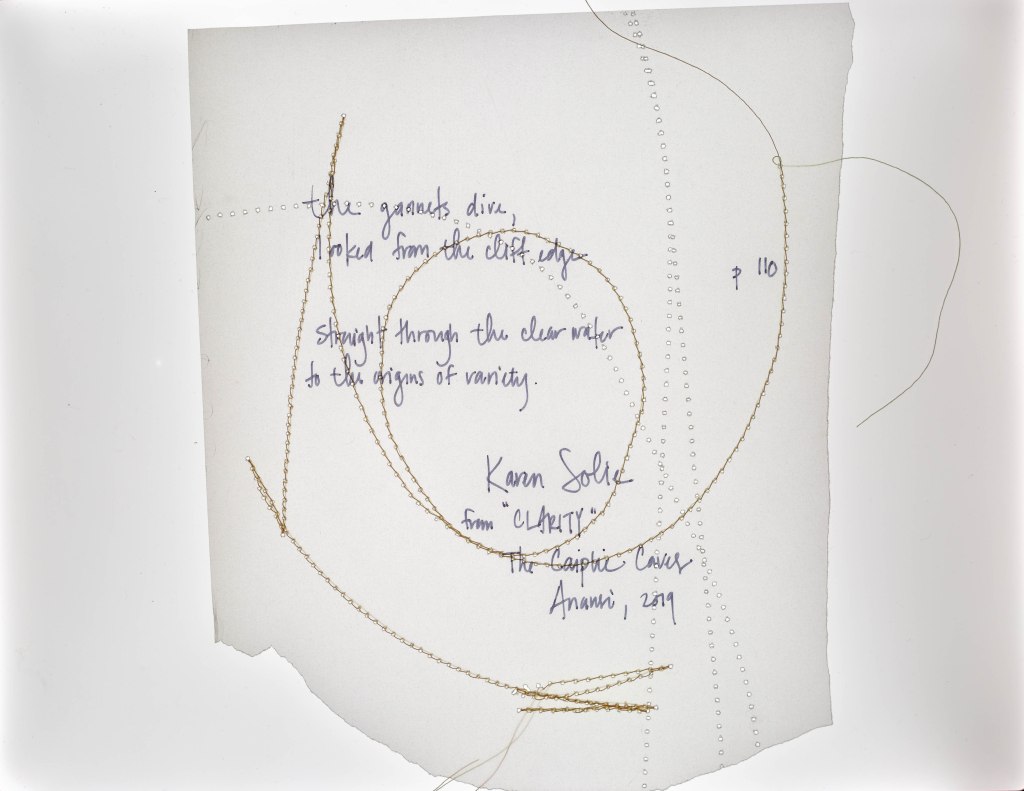 the gannets dive,
looked from the cliff edge
p 110
straight through the clear water
to the origins of variety.
Karen Solie
from "CLARITY"
The Caiplie Caves
Anansi, 2019